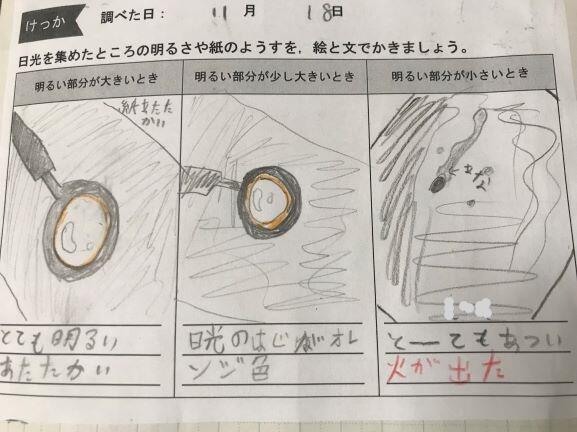 けっか
調べた日： 11月 18日
日光を集めたところの明るさや紙のようすを，絵と文でかきましょう。
明るい部分が大きいとき
明るい部分が少し大きいとき
明るい部分が小さいとき
紙あたた
かい
あな
とても明るい
あたたかい
日光のはじがオレ
ンジ色
とーてもあつい
火が出た